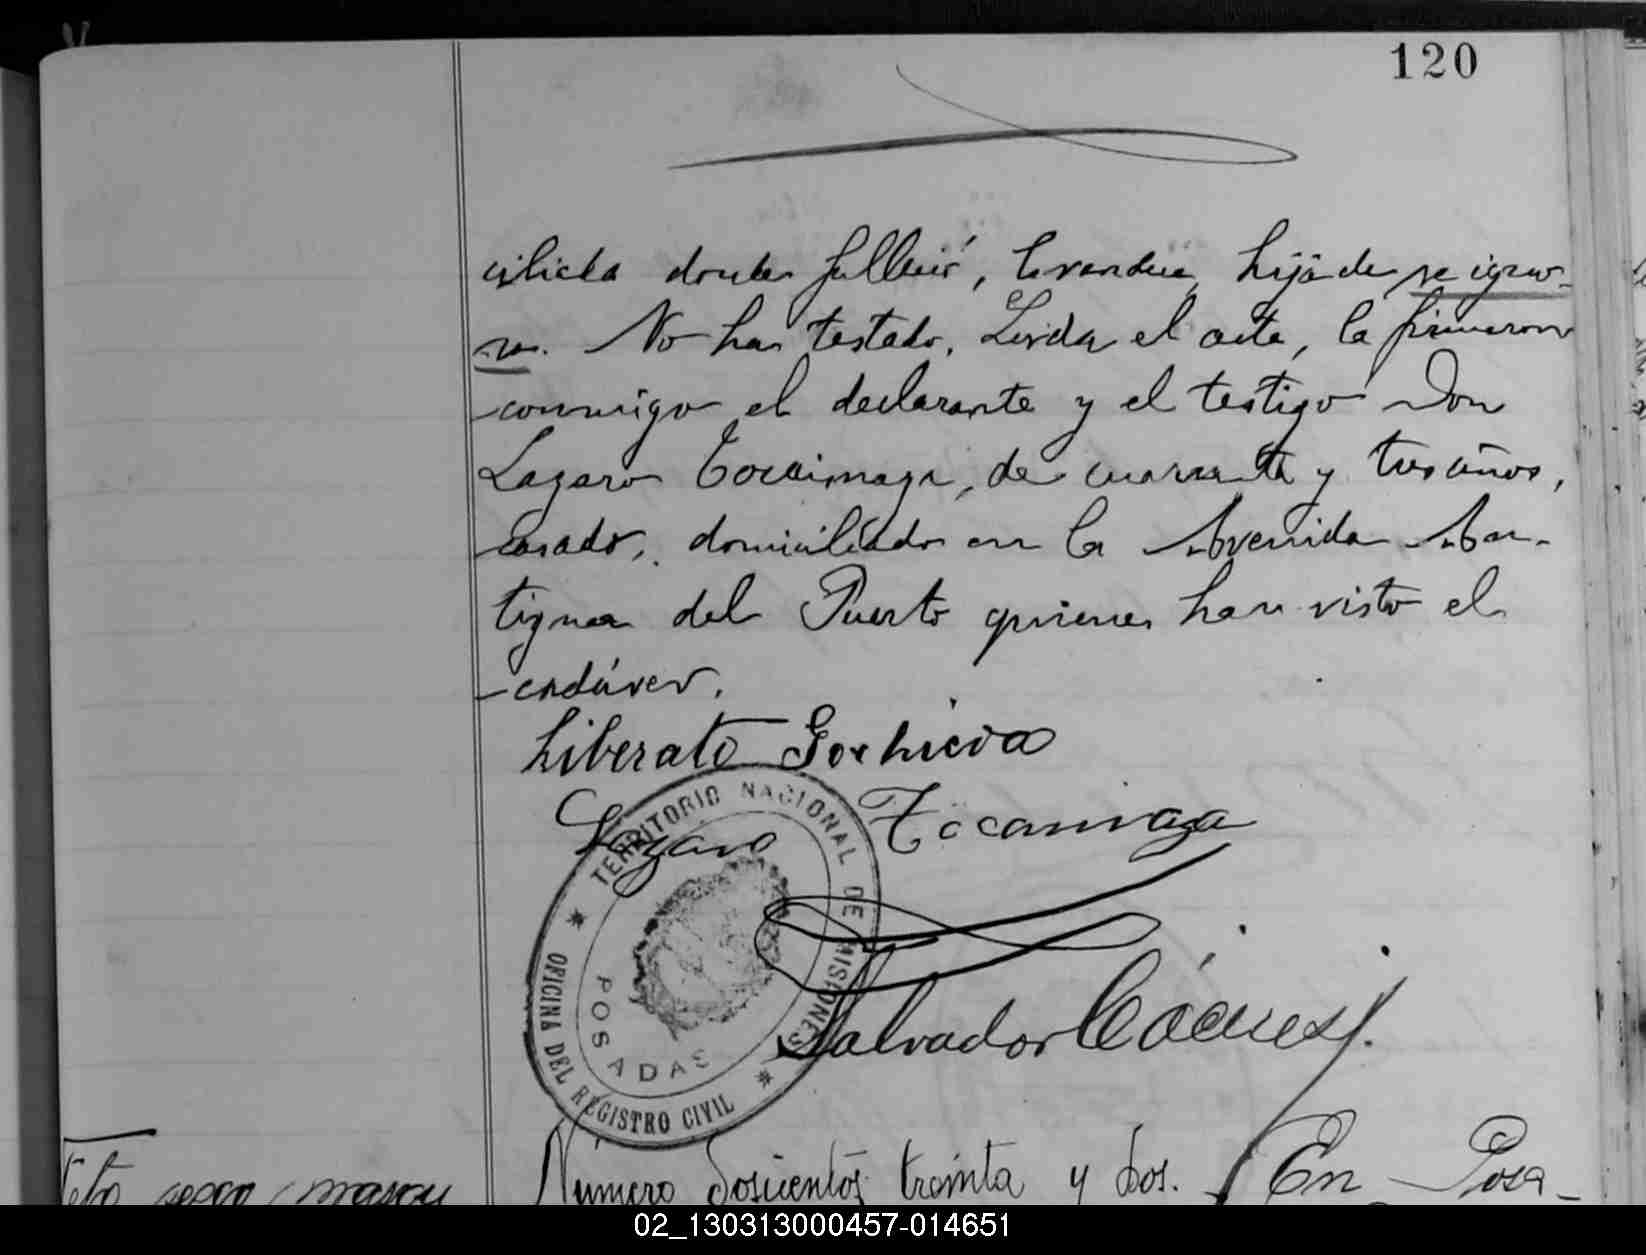 120
cilida donde falleció, lavandera, hija de se igno-
ra. No ha testado. Leída el acta, la firmaron
conmigo el declarante y el testigo Don
Lazaro de cuarenta y tres años,
casado, domiciliado en la Avenida An-
tigua del Puerto quienes han visto el
cadáver.
Liberato
Lazaro
TERRITORIO NACIONAL DE MISIONES
OFICINA DEL REGISTRO CIVIL
POSADAS
Salvador
Feto sexo
Número Doscientos treinta y dos. En Posa-
02_130313000457-014651